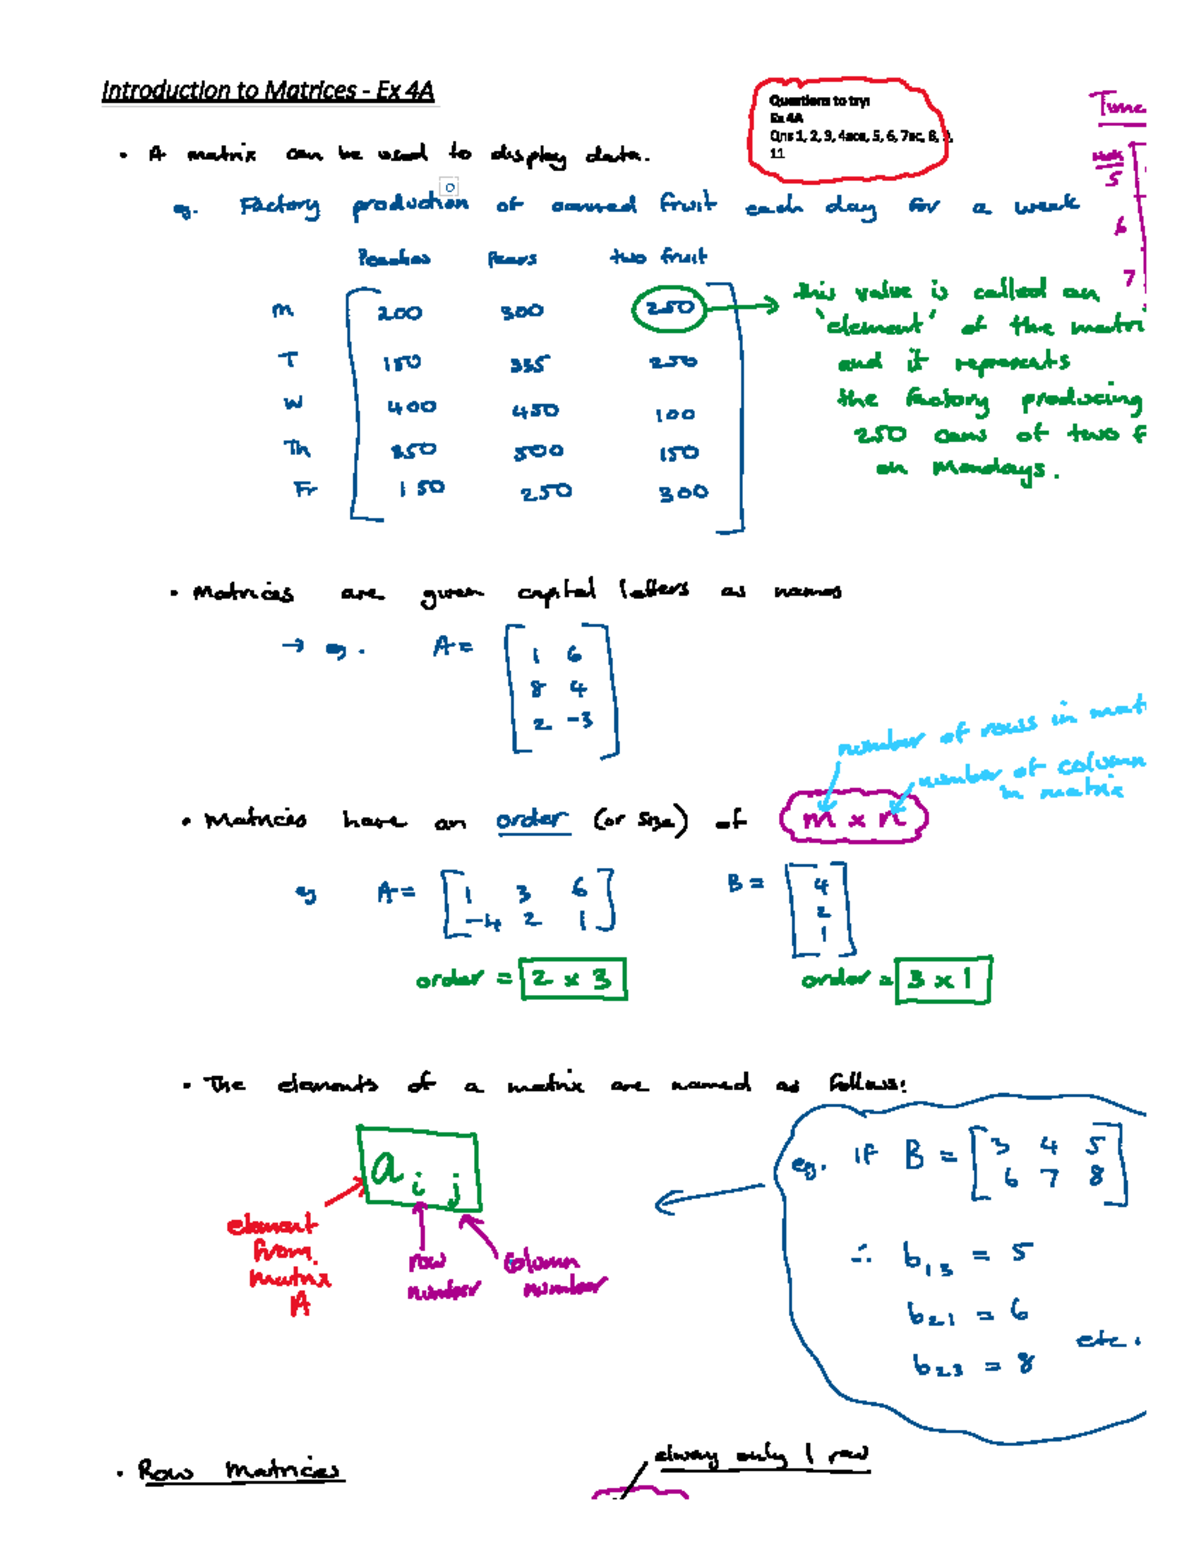 Introduction to Matrices - Ex 4A
Questions to try:
Ex 4A
Qns 1, 2, 3, 4ace, 5, 6, 7ac, 8, 9,
11
Time
Week
5
6
7
• A matrix can be used to display data.
eg. Factory production of canned fruit each day for a week
Peaches Pears two fruit
M 200 300 250
T 150 335 250
W 400 450 100
Th 350 500 150
Fr 150 250 300
this value is called an
'element' of the matri
and it represents
the factory producing
250 cans of two f
on Mondays.
• Matrices are given capital letters as names
→ eg. A =
1 6
8 4
2 -3
number of rows in mat
number of column
in matrix
• Matrices have an order (or size) of m x n
eg A = B =
1 3 6
-4 2 1
4
2
1
order = 2 x 3
order = 3 x 1
• The elements of a matrix are named as follows:
a i j
element
from
matrix
A
row
number
column
number
eg. if B =
3 4 5
6 7 8
∴ b13 = 5
b21 = 6
etc.
b23 = 8
• Row Matrices
alway only 1 row